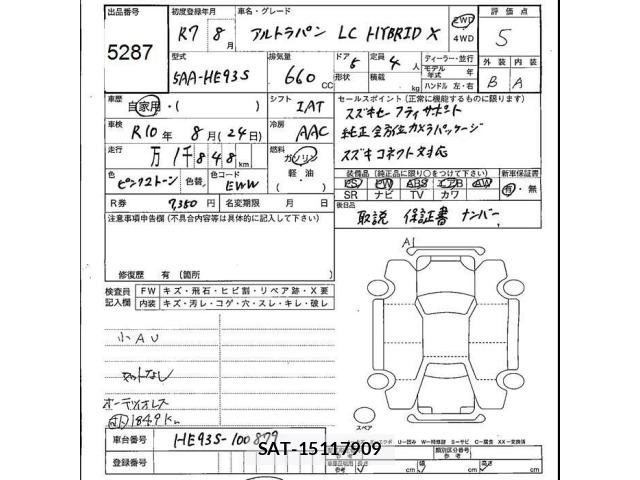 出品番号 初度登録年月 車名・グレード 評価点
5287 R7年 8月 アルトラパン LC HYBRID X 2WD 4WD 5
型式 排気量 ドア 5 定員 4人 ディーラー・並行 外装 内装
5AA-HE93S 660 CC 形状 積載 kg モデル年式 年式 ハンドル 左・右 B A
車歴 自家用・( ) シフト IAT セールスポイント(正常に機能するものに限ります)
車検 R10年 8月(24日) 冷房 AAC スズキセーフティサポート
純正全方位カメラパッケージ
走行 万1千848km 燃料 ガソリン 軽油 ・( ) スズキコネクト対応
色 ピンク2トーン 色替 色コード EWW 装備品(純正品に限り○をつけて下さい) 新車保証書
PS PW ABS エアB AW 有・無
SR ナビ TV カワ
R券 7,350円 名変期限 月 日 後日品 取説 保証書 ナンバー
注意事項申告欄(不具合内容等は具体的に記入して下さい)
A1
修復歴 有(箇所
検査員記入欄 FW キズ・飛石・ヒビ割・リペア跡・X要
内装 キズ・汚レ・コゲ・穴・スレ・キレ・破レ
小AU
マットなし
オーディオレス
1849km
スペア
車台番号 HE93S-100879
SAT-15117909
登録番号